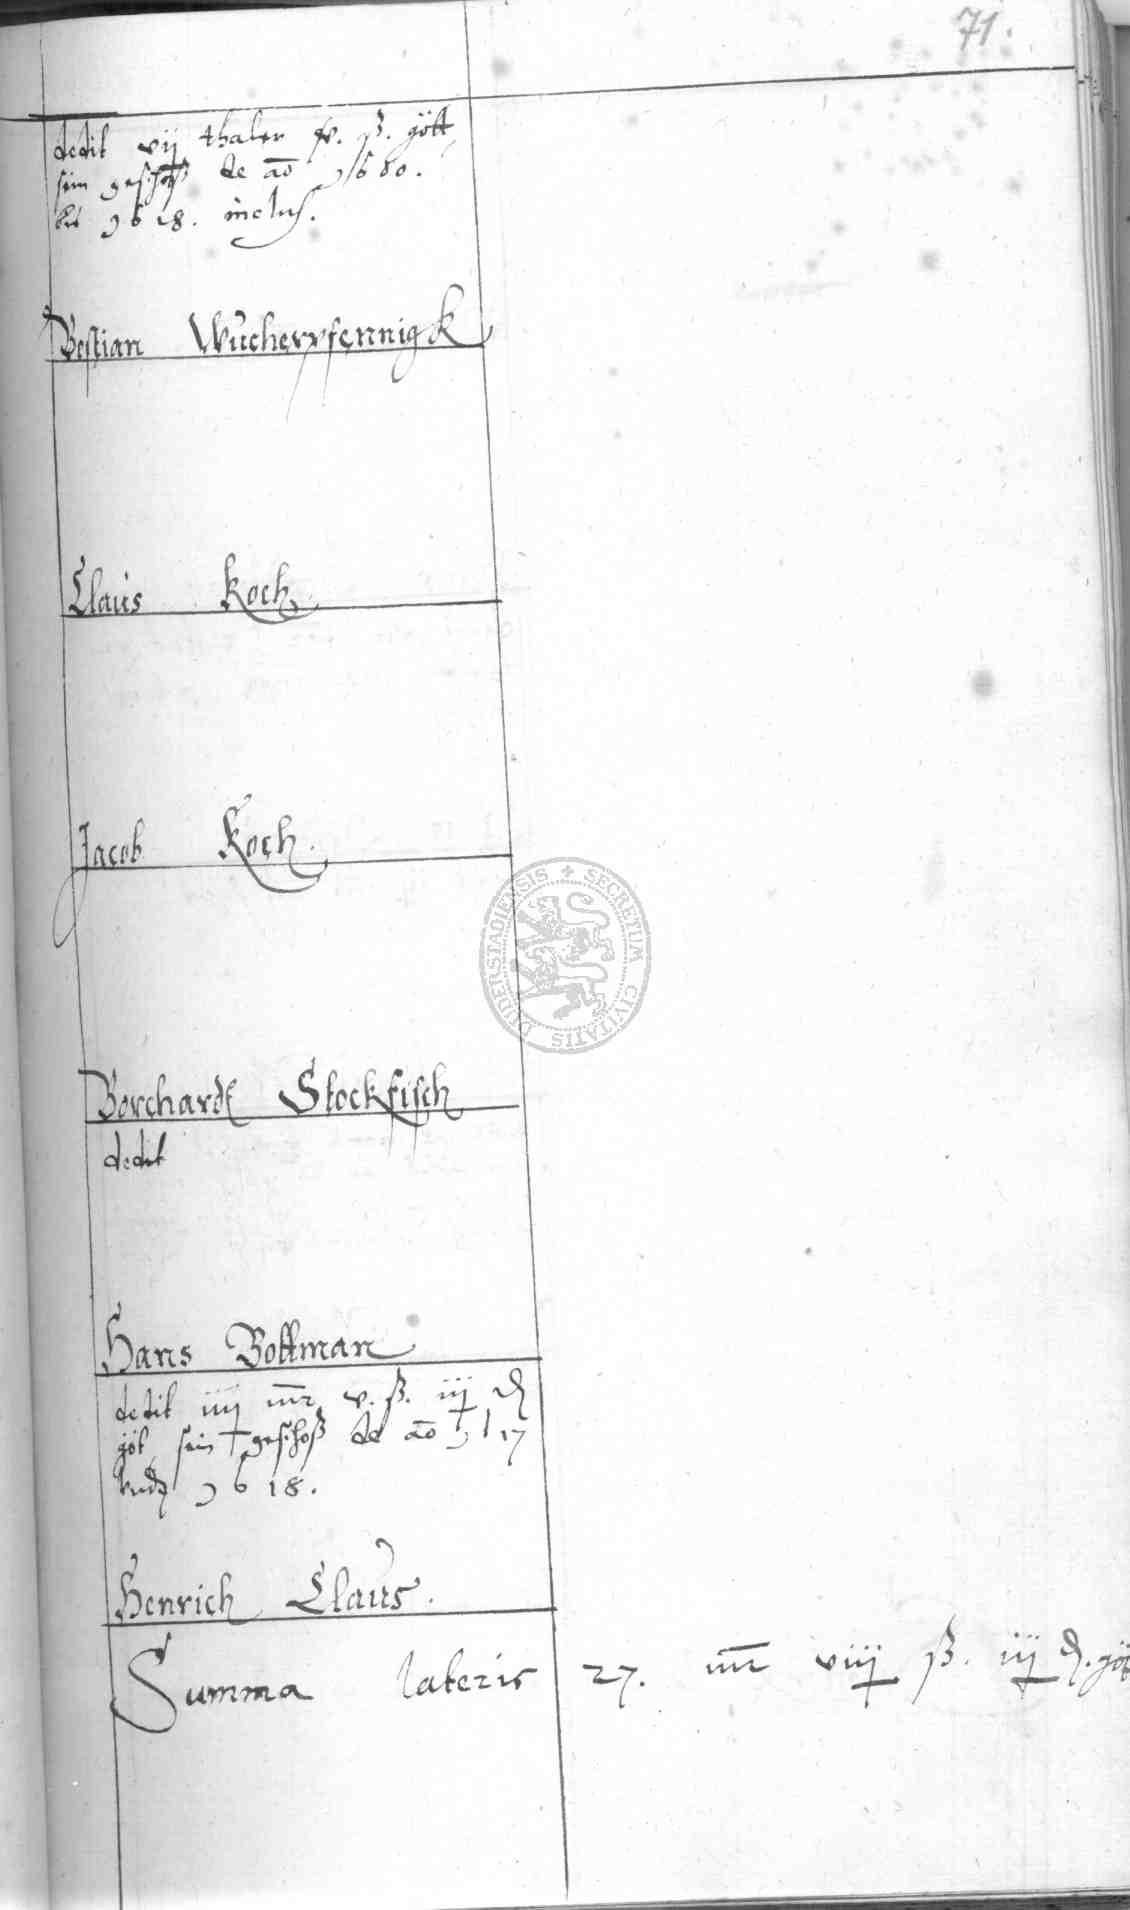 71.
dedit vij thaler xv. ß. gött
sein geschoß de ao 1600.
bis 1618. inclus.
Bestian Wucherpfennigk
Claus Koch
Jacob Koch.
Borchardt Stockfisch
dedit
Hans Bottman
dedit iiij mr v. ß. iij d
göt sein geschoß de ao 1617
1618.
Henrich Claus.
Summa lateris 27. mr viiij ß. iij d. göt
SECRETUM CIVITATIS DUDERSTADIENSIS